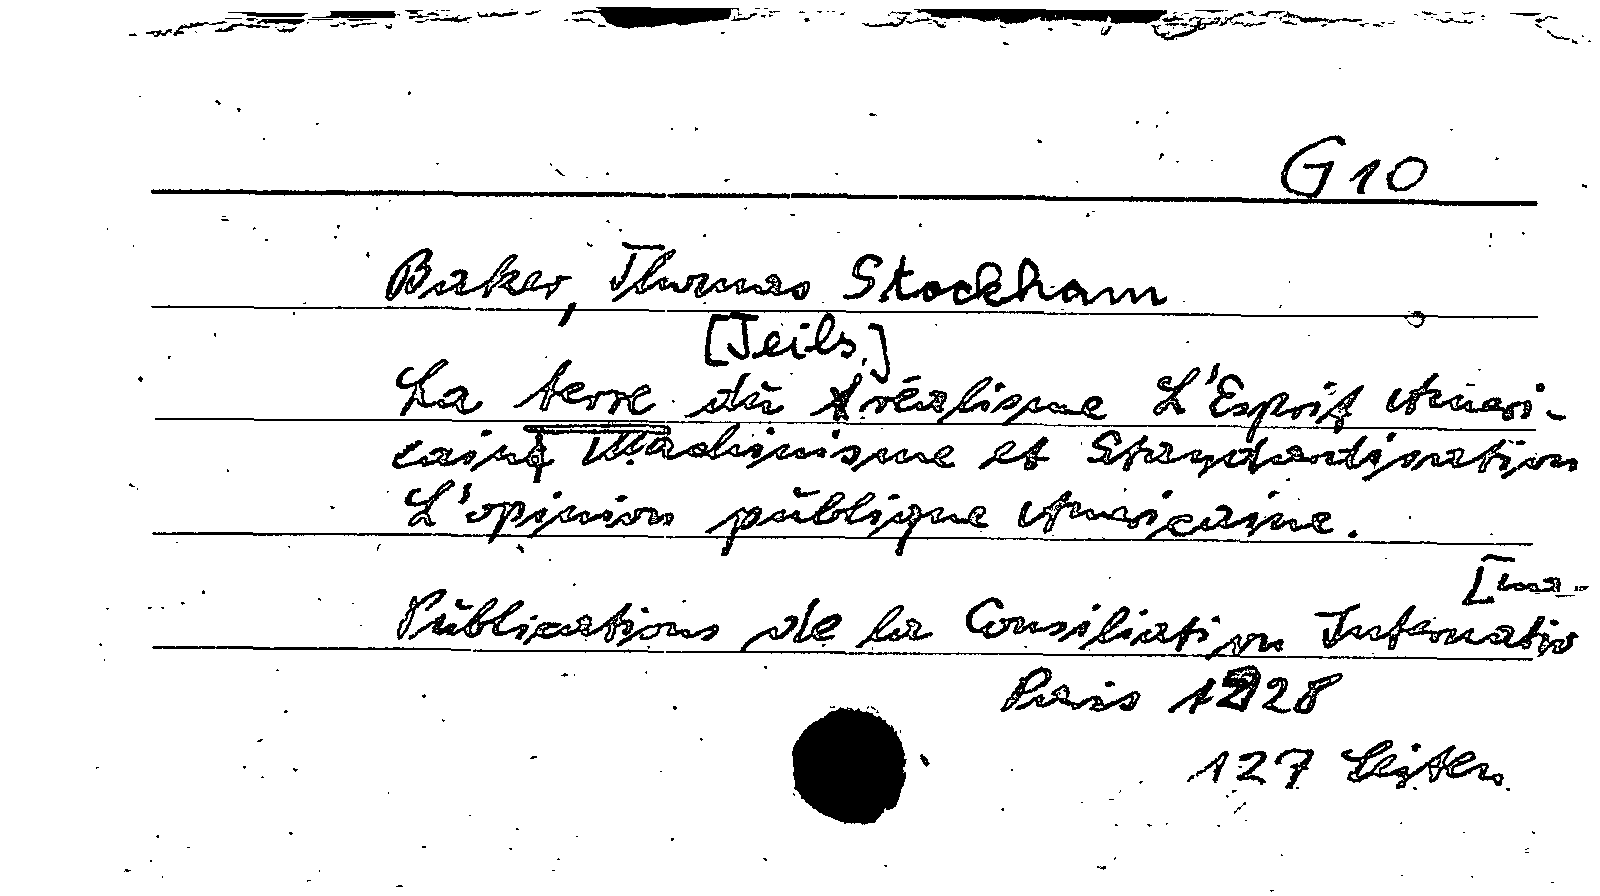 G 10
Baker, Thomas Stockham
[Teils.]
La terre du réalisme L'Esprit Ameri-
cain Machinisme et Standardisation
L'opinion publique Americaine.
[ma-
Publications de la Consiliation Internatio
Paris 1928
127 Seiten